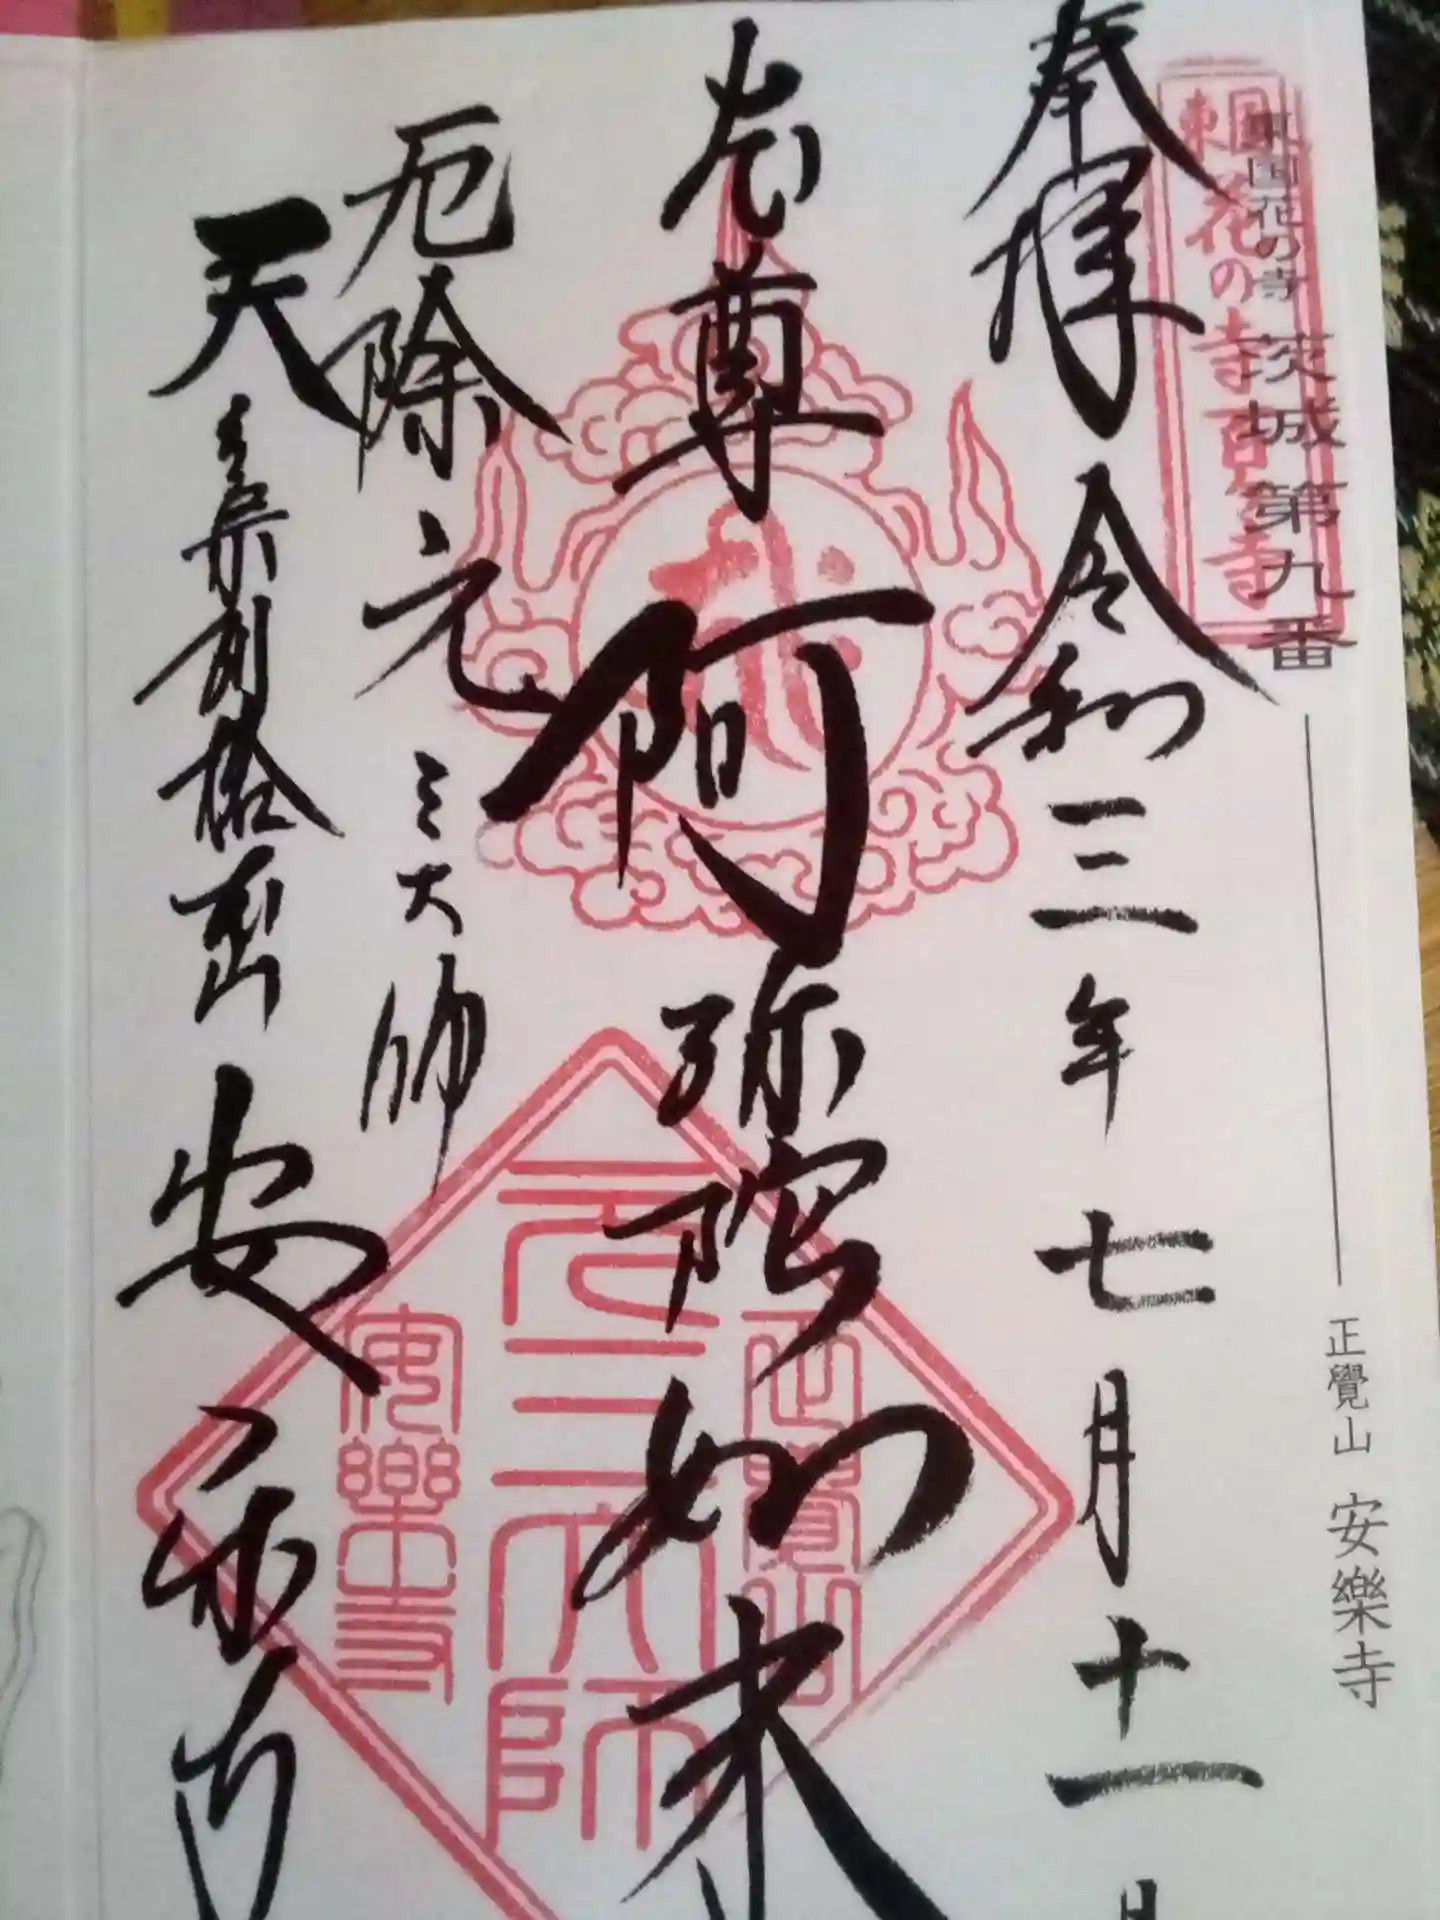 東国花の寺 茨城第九番
正覺山 安樂寺
東国花の寺百ヶ寺
奉拝 令和三年七月十一日
本尊 阿弥陀如来
厄除元三大師
安楽寺
正覺山
元三大師
安樂寺